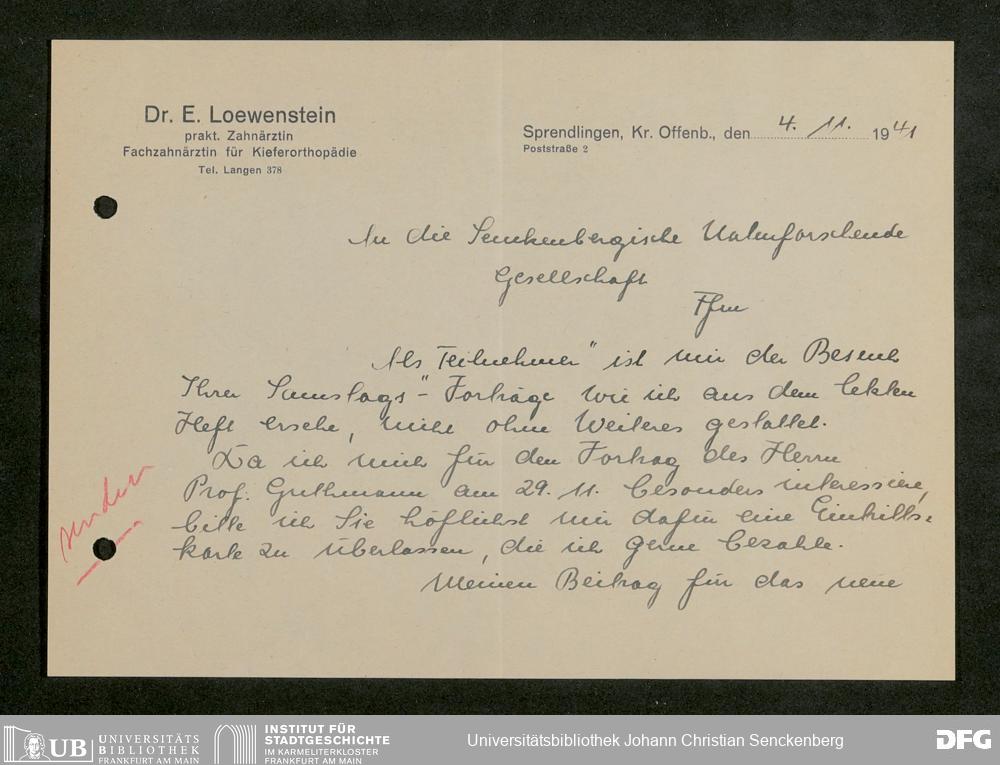 Dr. E. Loewenstein
prakt. Zahnärztin
Fachzahnärztin für Kieferorthopädie
Tel. Langen 378
Sprendlingen, Kr. Offenb., den 4. 11. 1941
Poststraße 2
An die Senckenbergische Naturforschende
Gesellschaft
Ffm
Als Teilnehmer" ist mir der Besuch
Ihrer Samstags"-Vorträge wie ich aus dem letzten
Heft ersehe, nicht ohne Weiteres gestattet.
Da ich mich für den Vortrag des Herrn
Prof. Guthmann am 29. 11. besonders interessiere,
bitte ich Sie höflichst mir dafür eine Eintritts-
karte zu überlassen, die ich gerne bezahle.
Meinen Beitrag für das neue
UB UNIVERSITÄTS
BIBLIOTHEK
FRANKFURT AM MAIN
INSTITUT FÜR
STADTGESCHICHTE
IM KARMELITERKLOSTER
FRANKFURT AM MAIN
Universitätsbibliothek Johann Christian Senckenberg
DFG